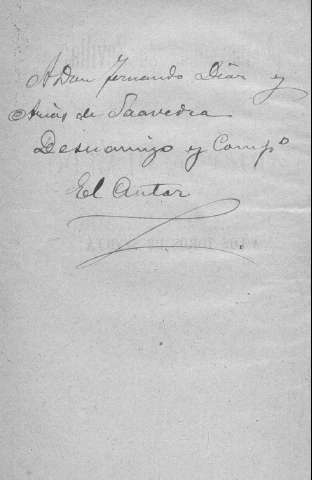 A Don Fernando Diaz y
Arias de Saavedra
Desu amigo y Compº
El Autor